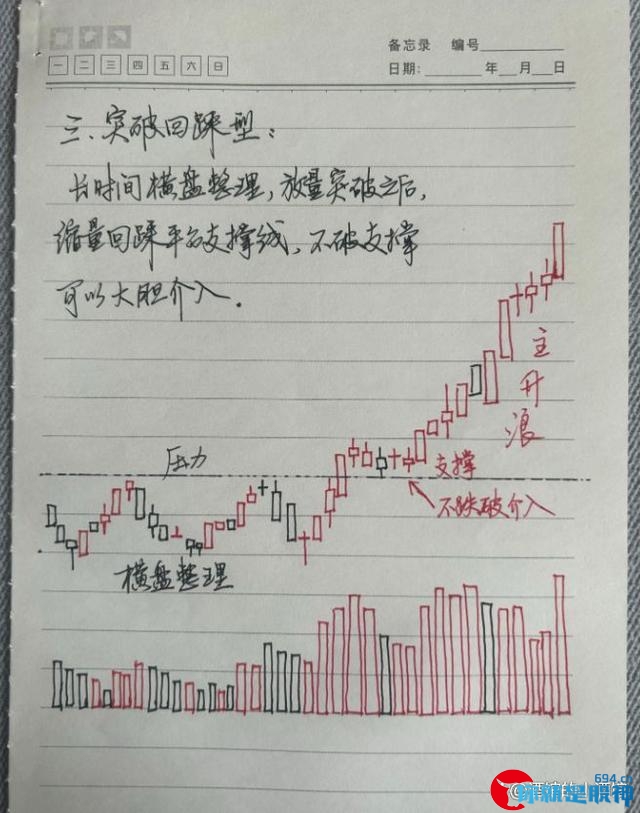 备忘录 编号
一 二 三 四 五 六 日
日期: 年 月 日
三、突破回踩型：
长时间横盘整理，放量突破之后，
缩量回踩平台支撑线，不破支撑
可以大胆介入．
主升浪
压力
支撑
不跌破介入
横盘整理
694.cn